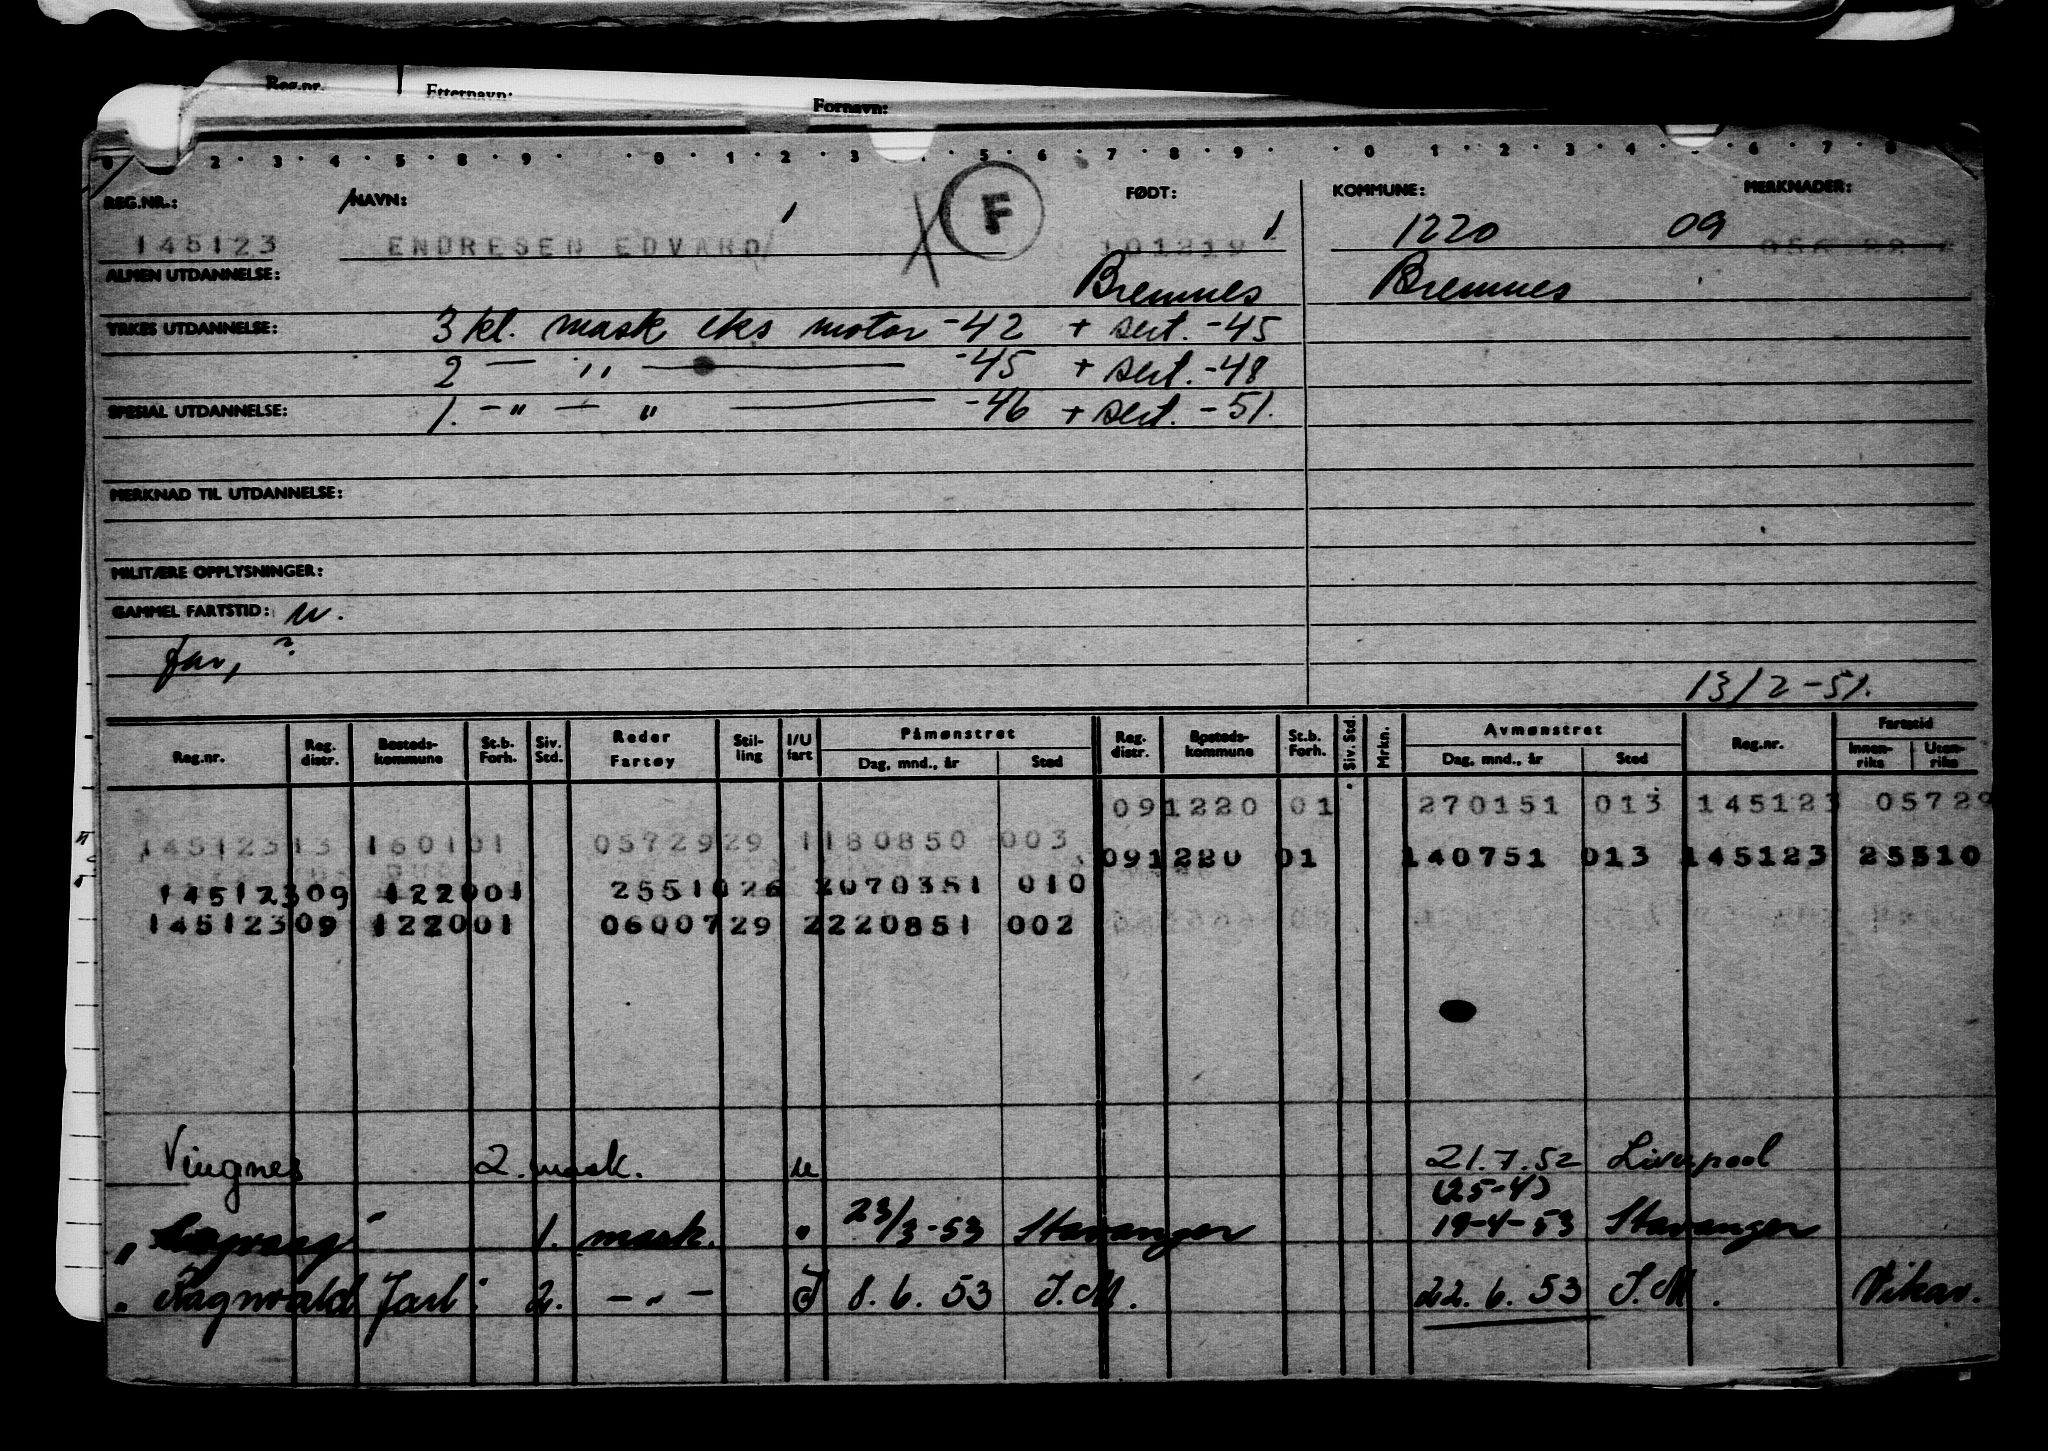 Reg.nr. Etternavn: Fornavn:
0 2 3 4 5 8 9 0 1 2 3 5 6 7 8 9 0 1 2 3 4 6 7 8
REG.NR.: NAVN: F FØDT: KOMMUNE: MERKNADER:
145123 ENDRESEN EDVARD 101219 1220 09
ALMEN UTDANNELSE: Bremnes Bremnes
YRKES UTDANNELSE: 3 kl. mask eks motor -42 + sert. -45
2 — " — -45 + sert. -48
SPESIAL UTDANNELSE: 1. - " — " — -46 + sert. - 51.
MERKNAD TIL UTDANNELSE:
MILITÆRE OPPLYSNINGER:
GAMMEL FARTSTID: u.
far, ?
13/2-51.
Reg.nr. Reg. distr. Bosteds-kommune St.b. Forh. Siv. Std. Reder Fartøy Stil-ling I/U fart Påmønstret Dag, mnd., år Sted Reg. distr. Bosteds-kommune St.b. Forh. Siv. Std. Mrkn. Avmønstret Dag, mnd., år Sted Reg.nr. Fartstid Innen-riks Uten-riks
091220 01 270151 013 145123 05729
14512313 160101 0572929 1180850 003
091220 01 140751 013 145123 25510
14512309 122001 2551026 2070351 010
14512309 122001 0600729 2220851 002
Vingnes 2. mask. u 21.7.52 Liverpool
(25-4)
" " 1. mask. " 23/3-53 Stavanger 19-4-53 Stavanger
" Ragnvald Jarl " 2. - " - I 8.6.53 I.M. 22.6.53 I.M. Vikar.